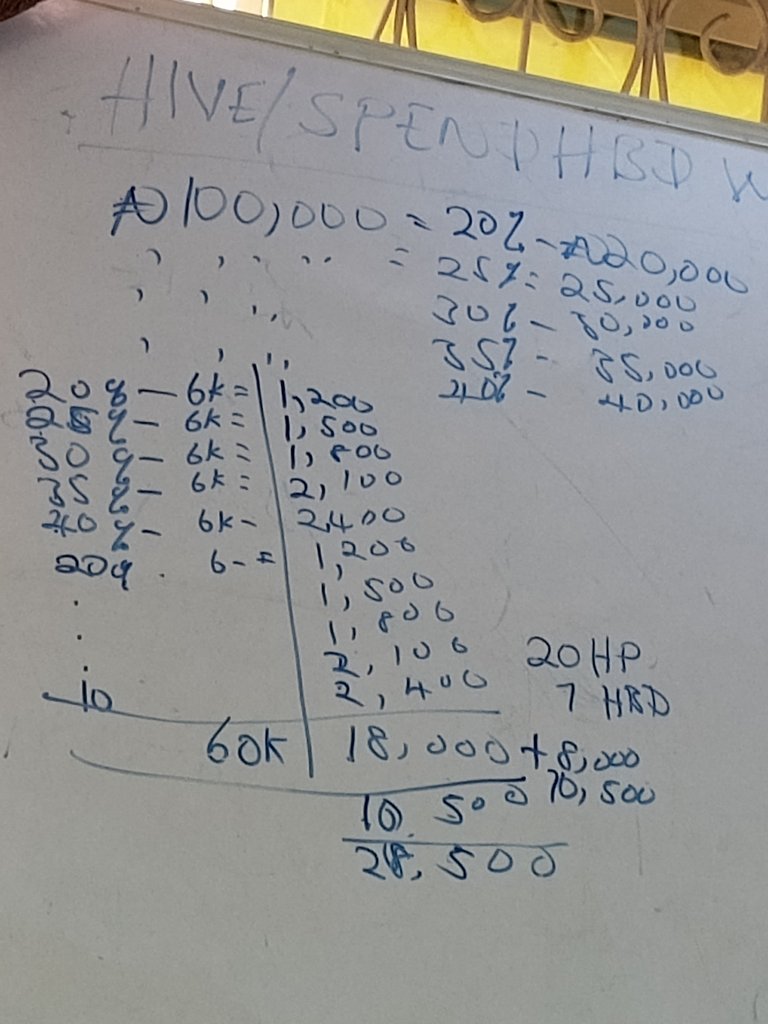 HIVE/SPEND HBD W
₦100,000 = 20% - ₦20,000
" " " = 25% = 25,000
" " " 30% - 30,000
" " " 35% = 35,000
40% - 40,000
20% - 6k = 1,200
25% - 6k = 1,500
30% - 6k = 1,800
35% - 6k = 2,100
40% - 6k - 2,400
20% . 6- = 1,200
. 1,500
. 1,800
. 2,100 20 HP
10 2,400 7 HBD
60k 18,000 + 8,000
10,500 10,500
28,500